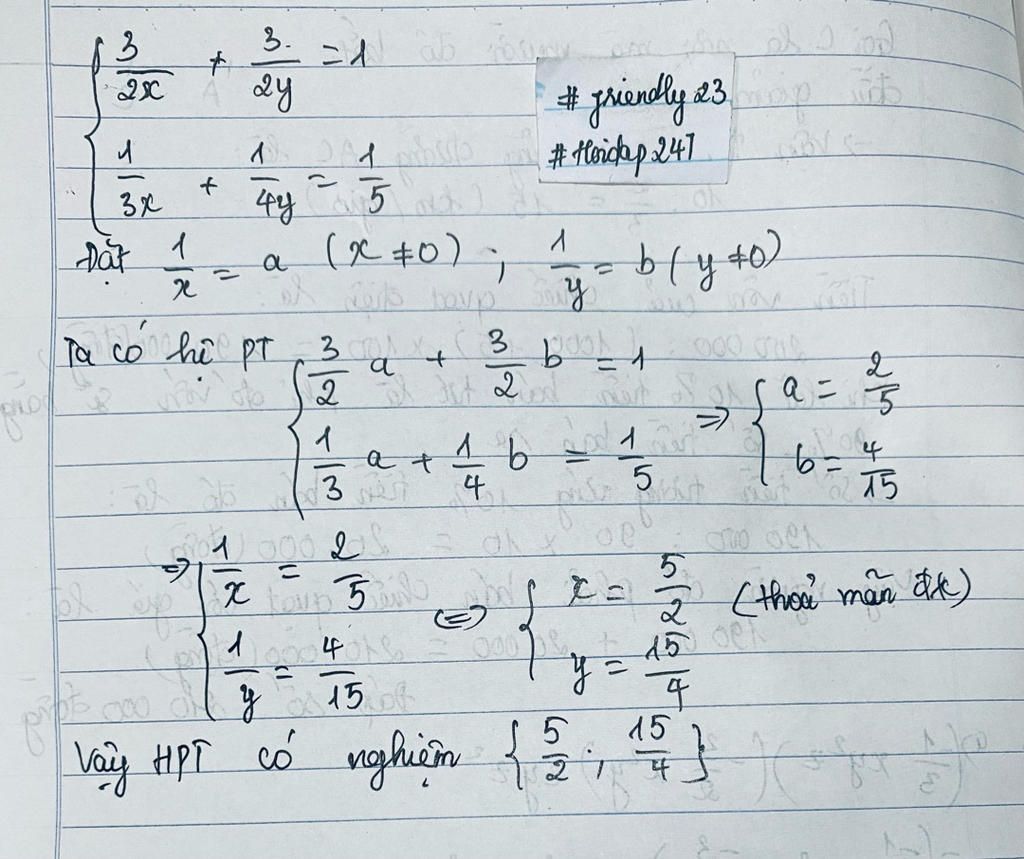 { 3/2x + 3/2y = 1
1/3x + 1/4y = 1/5
# friendly 23
# Hoidap 247
Đặt 1/x = a (x ≠ 0) ; 1/y = b (y ≠ 0)
Ta có hệ PT { 3/2 a + 3/2 b = 1
1/3 a + 1/4 b = 1/5
=> { a = 2/5
b = 4/15
=> { 1/x = 2/5
1/y = 4/15
<=> { x = 5/2 (thoả mãn đk)
y = 15/4
Vậy HPT có nghiệm { 5/2 ; 15/4 }